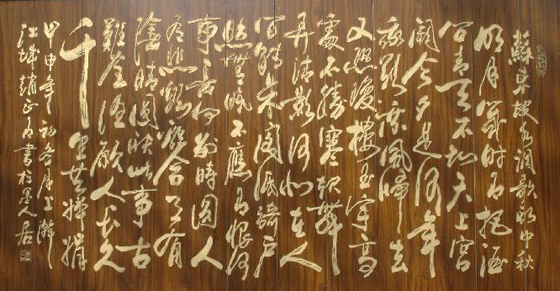 蘇東坡水調歌頭中秋
明月幾時有把酒
問青天不知天上宮
闕今夕是何年
我欲乘風歸去
又恐瓊樓玉宇高
處不勝寒起舞
弄清影何似在人
間轉朱閣低綺戶
照無眠不應有恨何
事長向別時圓人
有悲歡離合月有
陰晴圓缺此事古
難全但願人長久
千里共嬋娟
甲申年初冬月上澣
江城趙正書於墨人居